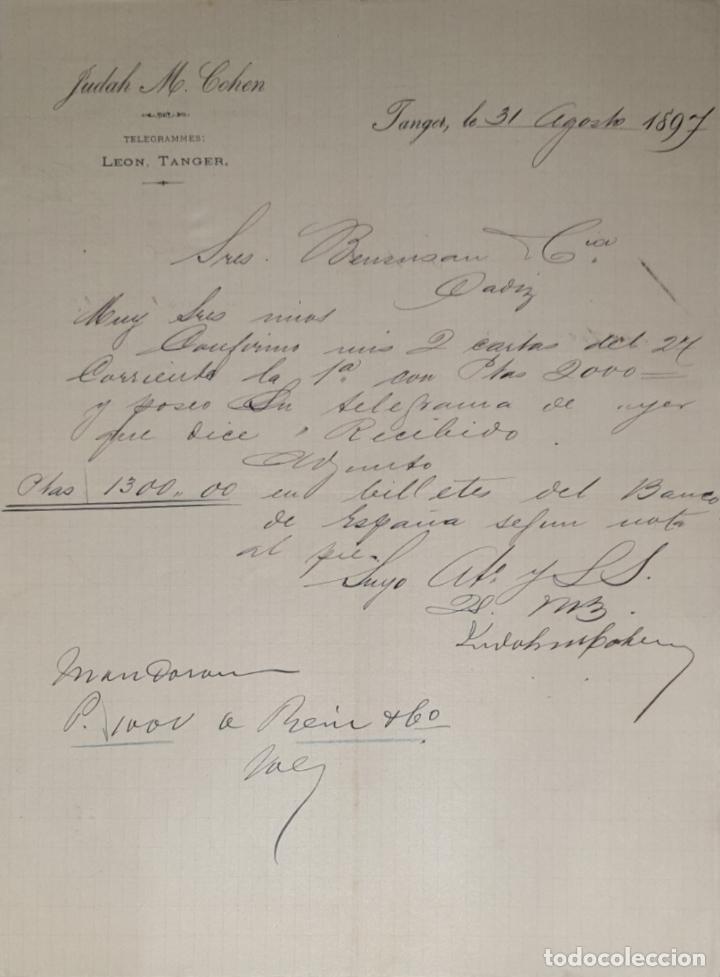 Judah M. Cohen
TELEGRAMMES:
LEON, TANGER.
Tanger, le 31 Agosto 1897
Sres. Benunsan & Cia
Cadiz
Muy Sres mios
Confirmo mis 2 cartas del 27
Corriente la 1a con Ptas 2000=
y poseo Su telegrama de ayer
que dice "Recibido
Adjunto
Ptas 1300,,00 en billetes del Banco
de España segun nota
al pie
Suyo Ato y S S.
Q. B. M.
Judah M Cohen
P. 1000 a Rein & Co
todocoleccion